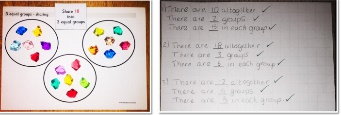 3 equal groups - sharing
Share 18
into
3 equal groups
There are 10 altogether ✓
There are 2 groups ✓
There are 5 in each group ✓
2) There are 18 altogether ✓
There are 3 groups ✓
There are 6 in each group ✓
There are altogether ✓
There are groups ✓
There are in each group ✓